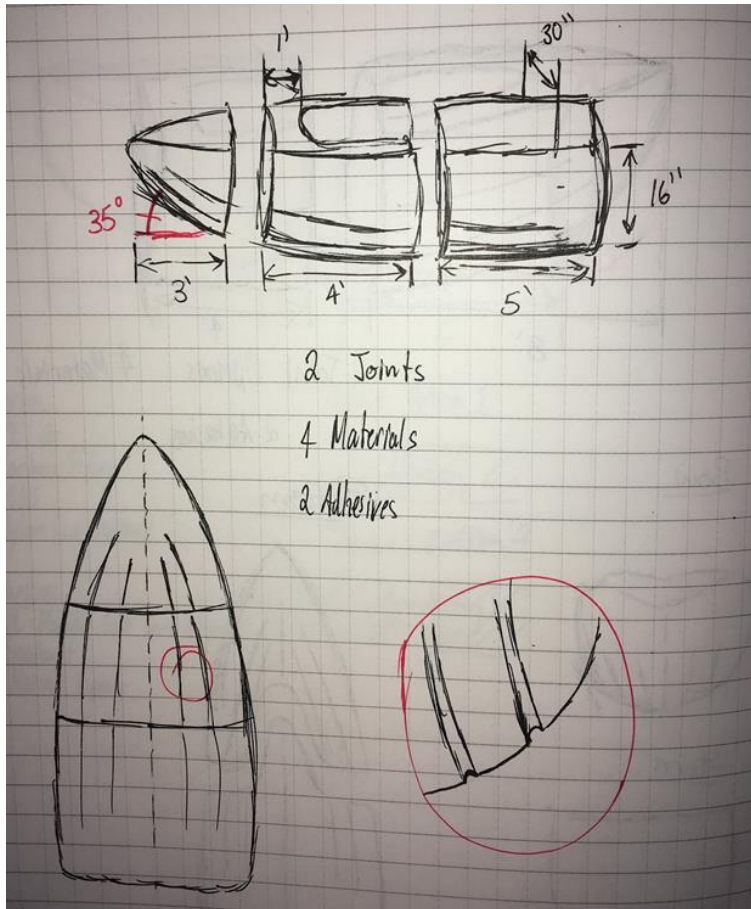 1'
30"
16"
35°
3'
4'
5'
2 Joints
4 Materials
2 Adhesives